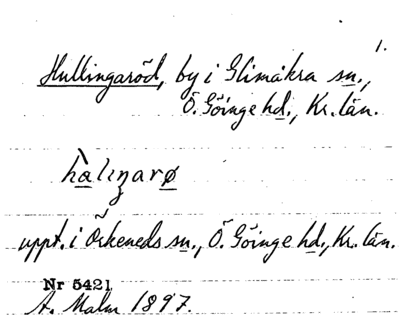 1.
Hullingaröd, by i Glimåkra sn.,
Ö. Göinge hd., Kr. län.
uppt. i Örkeneds sn., Ö. Göinge hd., Kr. län.
Nr 5421
A. Malm 1897.